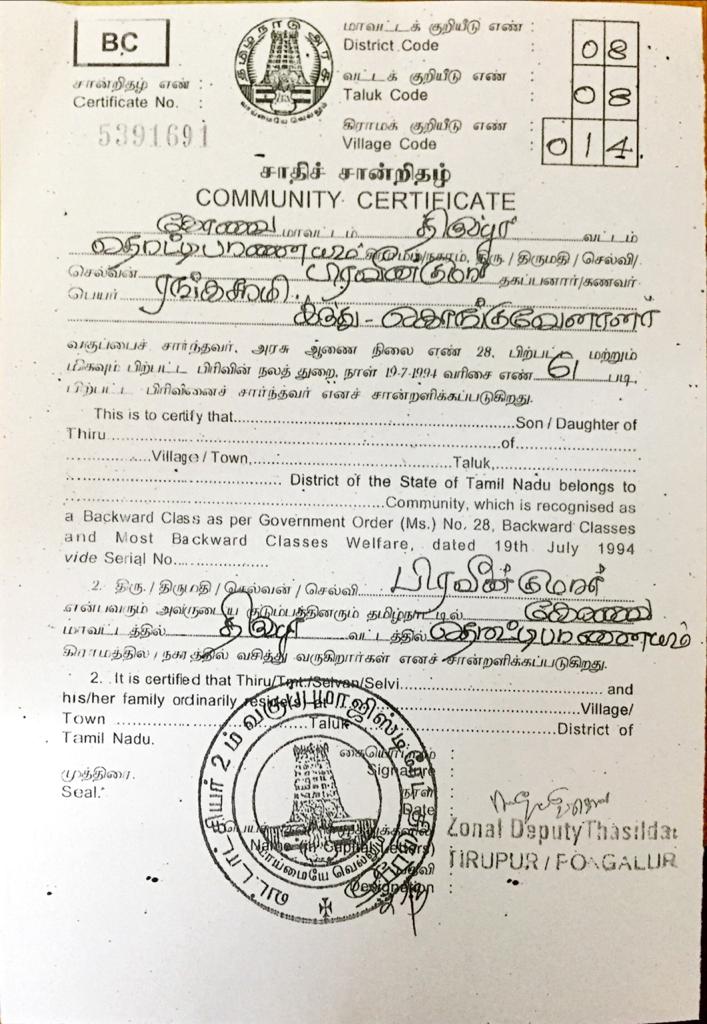 BC
மாவட்டக் குறியீடு எண் :
District Code : 08
சான்றிதழ் எண் :
Certificate No. :
வட்டக் குறியீடு எண் :
Taluk Code : 08
5391691
கிராமக் குறியீடு எண் :
Village Code : 014
தமிழ்நாடு அரசு
வாய்மையே வெல்லும்
சாதிச் சான்றிதழ்
COMMUNITY CERTIFICATE
கோவை மாவட்டம் திருப்பூர் வட்டம்
கிராமம்/நகரம், திரு / திருமதி / செல்வி/
செல்வன் பிரவீண்குமார் தகப்பனார்/கணவர்
பெயர் ரங்கசாமி
இந்து - கொங்குவேளாளர்
வகுப்பைச் சார்ந்தவர், அரசு ஆணை நிலை எண் 28, பிற்பட்ட மற்றும்
மிகவும் பிற்பட்ட பிரிவின் நலத் துறை, நாள் 19-7-1994 வரிசை எண் 61 படி,
பிற்பட்ட பிரிவினைச் சார்ந்தவர் எனச் சான்றளிக்கப்படுகிறது.
This is to certify that..............................Son / Daughter of
Thiru..............................of....................
....................Village / Town,....................Taluk,....................
.............................. District of the State of Tamil Nadu belongs to
..............................Community, which is recognised as
a Backward Class as per Government Order (Ms.) No. 28, Backward Classes
and Most Backward Classes Welfare, dated 19th July 1994
vide Serial No....................
2. திரு. / திருமதி / செல்வன் / செல்வி பிரவீன்குமார்
என்பவரும் அவருடைய குடும்பத்தினரும் தமிழ்நாட்டில் கோவை
மாவட்டத்தில் திருப்பூர் வட்டத்தில்
கிராமத்தில / நகரத்தில் வசித்து வருகிறார்கள் எனச் சான்றளிக்கப்படுகிறது.
2. It is certified that Thiru/Tmt./Selvan/Selvi.............................. and
his/her family ordinarily reside(s) at ..............................Village/
Town .............................. Taluk ..............................District of
Tamil Nadu.
வட்டாட்சியர் 2 ம் வகுப்பு மாஜிஸ்டிரேட்
வாய்மையே வெல்லும்
முத்திரை.
Seal.
Signature :
நாள் :
Date :
Name (in Capital Letters) :
பதவி
Designation :
Zonal Deputy Thasildar
TIRUPUR / PONGALUR